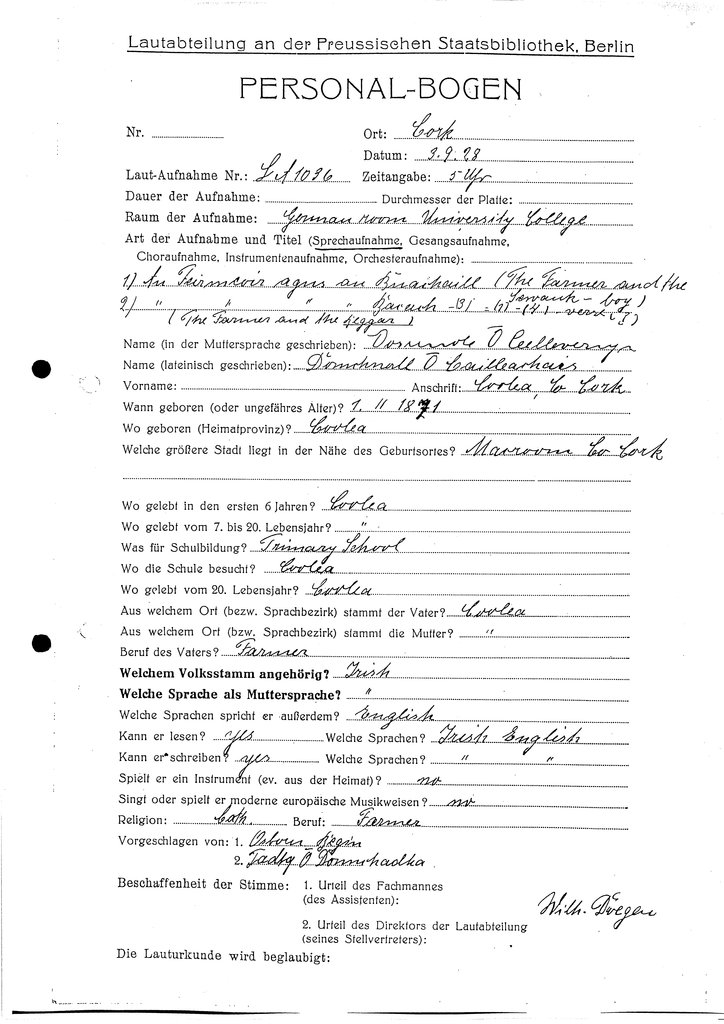 Lautabteilung an der Preussischen Staatsbibliothek, Berlin
PERSONAL-BOGEN
Nr.
Ort: Cork
Datum: 3.9.28
Laut-Aufnahme Nr.: LA 1036 Zeitangabe: 5 Uhr
Dauer der Aufnahme: Durchmesser der Platte:
Raum der Aufnahme: German room University College
Art der Aufnahme und Titel (Sprechaufnahme, Gesangsaufnahme,
Choraufnahme, Instrumentenaufnahme, Orchesteraufnahme):
1) An Feirmeoir agus an Buachaill (The Farmer and the
Servant-boy)
2) " " " "
(The Farmer and the Beggar)
Name (in der Muttersprache geschrieben):
Name (lateinisch geschrieben): Domhnall Ó
Vorname: Anschrift: Coolea, Co Cork
Wann geboren (oder ungefähres Alter)? 1. 11 1871
Wo geboren (Heimatprovinz)? Coolea
Welche größere Stadt liegt in der Nähe des Geburtsortes? Macroom Co Cork
Wo gelebt in den ersten 6 Jahren? Coolea
Wo gelebt vom 7. bis 20. Lebensjahr? "
Was für Schulbildung? Primary School
Wo die Schule besucht? Coolea
Wo gelebt vom 20. Lebensjahr? Coolea
Aus welchem Ort (bezw. Sprachbezirk) stammt der Vater? Coolea
Aus welchem Ort (bzw. Sprachbezirk) stammt die Mutter? "
Beruf des Vaters? Farmer
Welchem Volksstamm angehörig? Irish
Welche Sprache als Muttersprache? "
Welche Sprachen spricht er außerdem? English
Kann er lesen? yes Welche Sprachen? Irish English
Kann er schreiben? yes Welche Sprachen? " "
Spielt er ein Instrument (ev. aus der Heimat)? no
Singt oder spielt er moderne europäische Musikweisen? no
Religion: Cath. Beruf: Farmer
Vorgeschlagen von: 1. Osborn Bergin
2. Tadhg Ó Donnchadha
Beschaffenheit der Stimme: 1. Urteil des Fachmannes
(des Assistenten):
Wilh. Doegen
2. Urteil des Direktors der Lautabteilung
(seines Stellvertreters):
Die Lauturkunde wird beglaubigt: